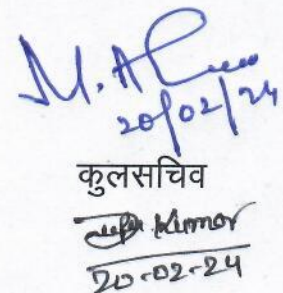 M. A
20/02/24
कुलसचिव
Kumar
20-02-24